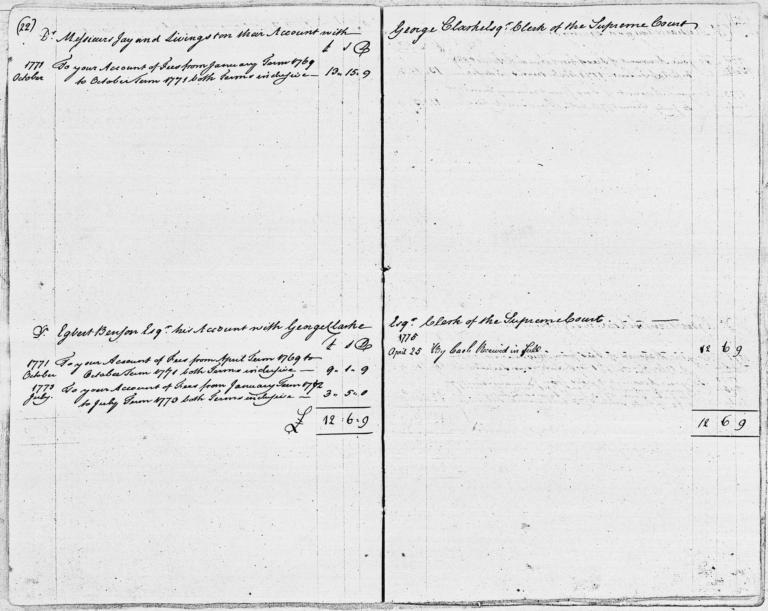 (22)
Dr Messieurs Jay and Livingston their Account with
£ s D
1771 To your Account of Fees from January Term 1769
October to October Term 1771 both Terms inclusive — 13 " 15 " 9
Dr Egbert Benson Esqr his Account with George Clarke
£ s D
1771 To your Account of Fees from April Term 1769 to
October October Term 1771 both Terms inclusive — 9 " 1 " 9
1773 To your Account of Fees from January Term 1772
July. to July Term 1773 both Terms inclusive — 3 " 5 " 0
£ 12 " 6 " 9
George Clarke Esqr Clerk of the Supreme Court
Esqr Clerk of the Supreme Court
1775
April 25 By Cash Received in full - 12 6 9
12 6 9